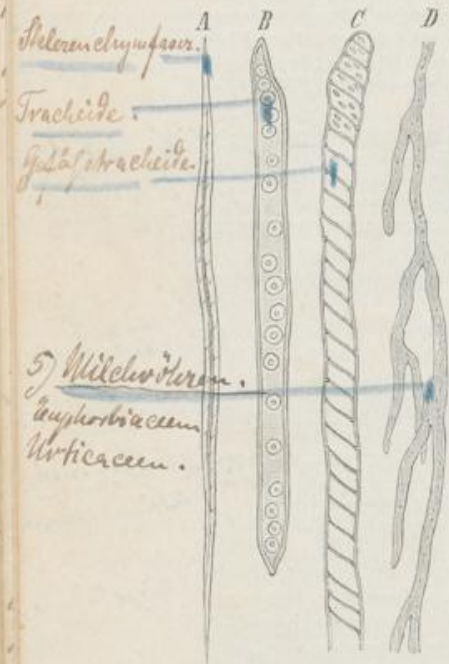 A B C D
Sklerenchymfaser.
Tracheide.
Gefäßtracheide.
5) Milchröhren.
Euphorbiaceen
Urticaceen.